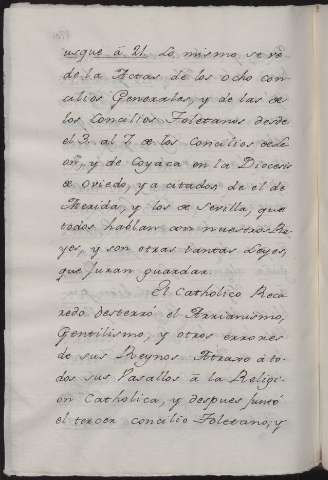 usque à 21. Lo mismo se vé
de la Actas de los ocho con
cilios Generales, y de las de
los Concilios Toletanos desde
el 3. al 7. de los Concilios de Le
on, y de Coyáca en la Diocesis
de Oviedo, ya citados, de el de
Merida, y los de Sevilla, que
todos hablan con nuestros Re
yes, y son otras tantas Leyes,
que juran guardar.
El Catholico Reca
redo desterró el Arrianismo,
Gentilismo, y otros errores
de sus Reynos Atraxo à to-
dos sus Vasallos à la Religi-
on Catholica, y despues juntó
el tercer Concilio Toletano, y